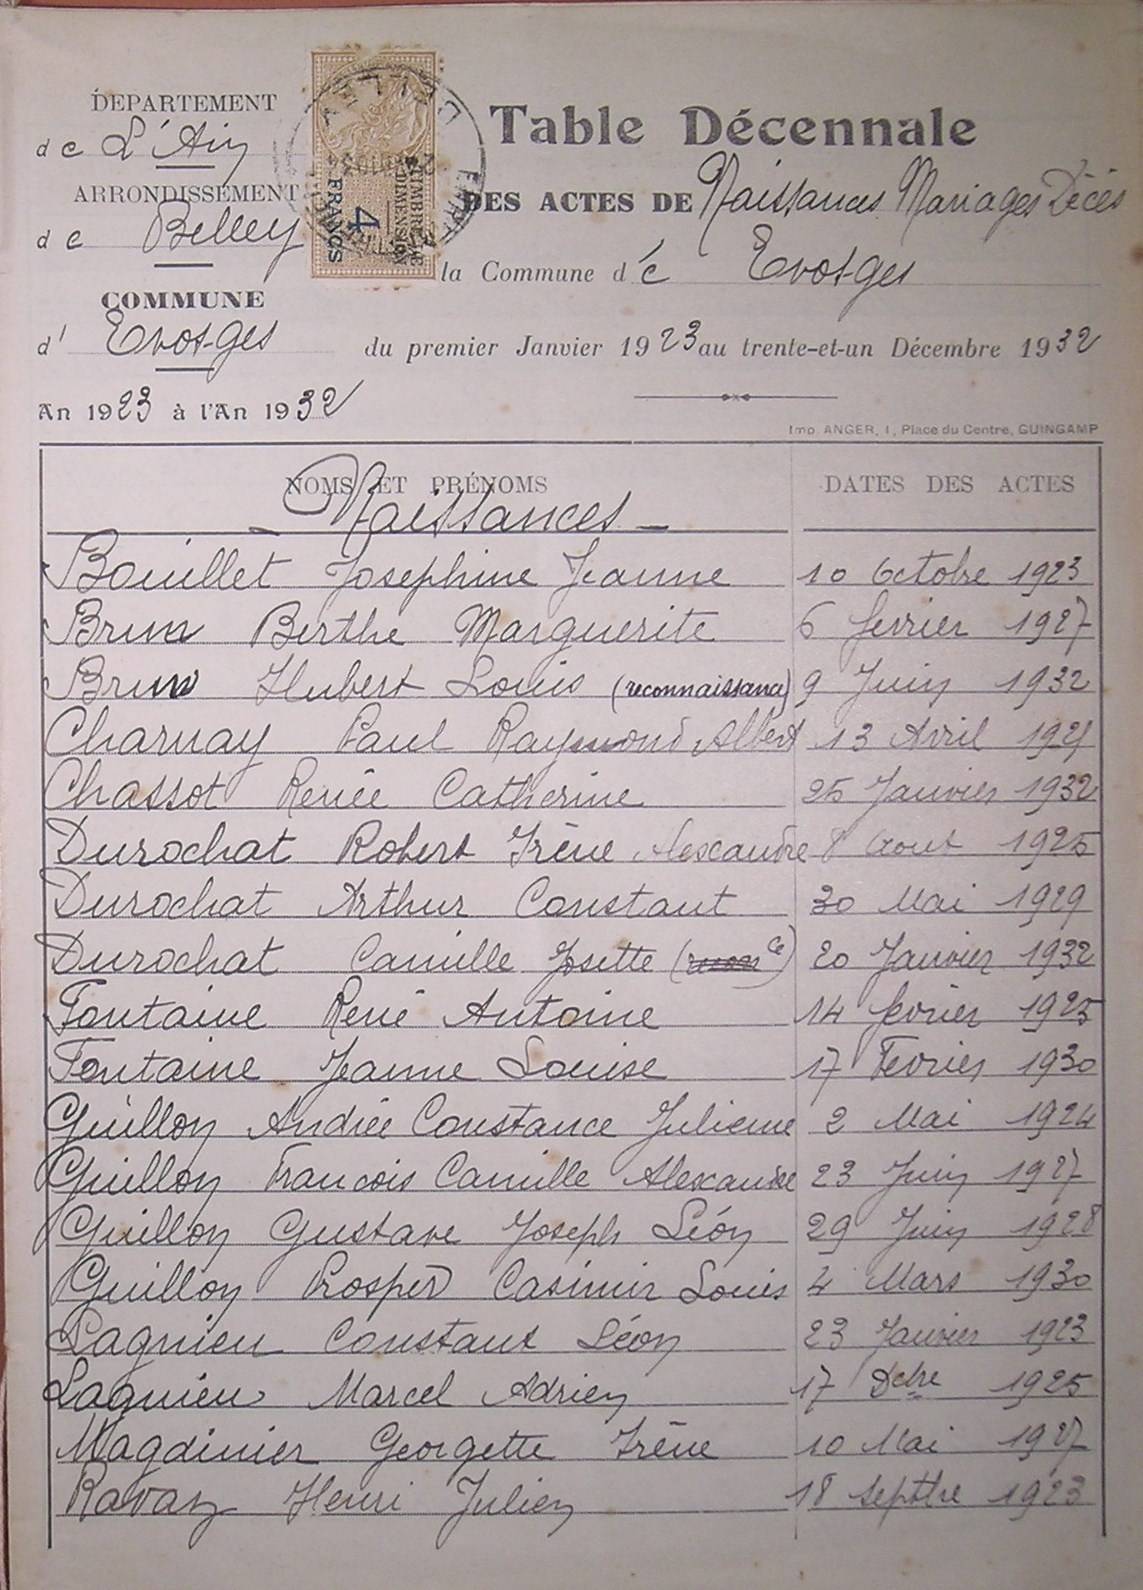 DEPARTEMENT
de L'Ain
ARRONDISSEMENT
de Belley
COMMUNE
d' Evosges
An 1923 à l'An 1932
TIMBRE DE
DIMENSION
4
FRANCS
Table Décennale
DES ACTES DE Naissances Mariages Décès
la Commune d'e Evosges
du premier Janvier 1923 au trente-et-un Décembre 1932
Imp. ANGER, 1, Place du Centre, GUINGAMP
NOMS ET PRÉNOMS DATES DES ACTES
Naissances
Bouillet Josephine Jeanne 10 Octobre 1923
Brun Berthe Marguerite 6 fevrier 1927
Brun Hubert Louis (reconnaissance) 9 Juin 1932
Charnay Paul Raymond Albert 13 Avril
Chassot Renée Catherine 25 Janvier 1932
Durochat Robert Irène Alexandre 8 Aout 1925
Durochat Arthur Constant 30 Mai 1929
Durochat Camille Josette 20 Janvier 1932
Fontaine René Antoine 14 fevrier 1925
Fontaine Jeanne Louise 17 Fevrier 1930
Guillon Andrée Constance Julienne 2 Mai 1924
Guillon Francois Camille Alexandre 23 Juin 1927
Guillon Gustave Joseph Léon 29 Juin 1928
Guillon Prosper Casimir Louis 4 Mars 1930
Lagnieu Constant Léon 23 Janvier 1923
Lagnieu Marcel Adrien 17 Dcbre 1925
Magdinier Georgette Irène 10 Mai 1927
Ravaz Henri Julien 18 Septbre 1923